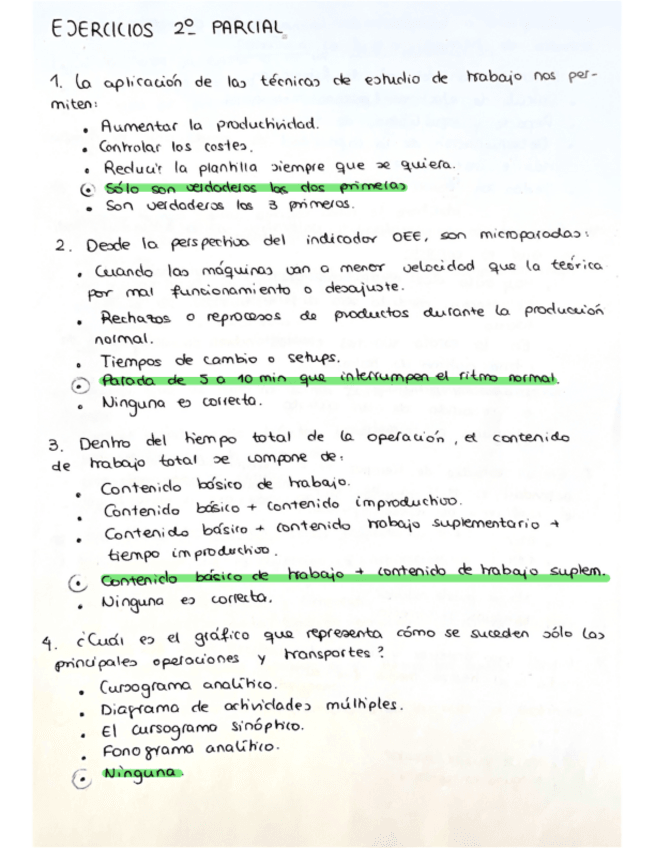 EJERCICIOS 2º PARCIAL.
1. La aplicación de las técnicas de estudio de trabajo nos per-
miten:
• Aumentar la productividad.
• Controlar los costes.
• Reducir la plantilla siempre que se quiera.
• Sólo son verdaderos los dos primeras
• Son verdaderos los 3 primeros.
2. Desde la perspectiva del indicador OEE, son microparadas:
• Cuando las máquinas van a menor velocidad que la teórica
por mal funcionamiento o desajuste.
• Rechazos o reprocesos de productos durante la producción
normal.
• Tiempos de cambio o setups.
• Parada de 5 a 10 min que interrumpen el ritmo normal.
• Ninguna es correcta.
3. Dentro del tiempo total de la operación, el contenido
de trabajo total se compone de:
• Contenido básico de trabajo.
• Contenido básico + contenido improductivo.
• Contenido básico + contenido trabajo suplementario +
tiempo improductivo.
• Contenido básico de trabajo + contenido de trabajo suplem.
• Ninguna es correcta.
4. ¿Cuál es el gráfico que representa cómo se suceden sólo las
principales operaciones y transportes?
• Cursograma analítico.
• Diagrama de actividades múltiples.
• El cursograma sinóptico.
• Fonograma analítico.
• Ninguna.